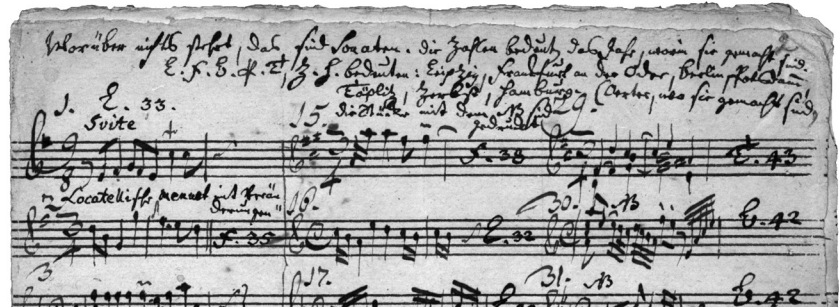 Worüber nichts steht, das sind Sonaten. die Zahlen bedeut das Jahr, worin sie gemacht sind.
L. F. B. P. T, Z. H. bedeuten: Leipzig, Frankfurt an der Oder, Berlin, Potsdam,
Töplitz, Zerbst, Hamburg (Oerter, wo sie gemacht sind,
die Stücke mit dem NB sind
gedruckt
1. L. 33.
Svite
15.
F. 38
L. 43
2 Locatellische menuet mit Verän
derungen
F. 35
16.
L. 32
30. NB
B. 42
3
17.
31. NB
B. 42